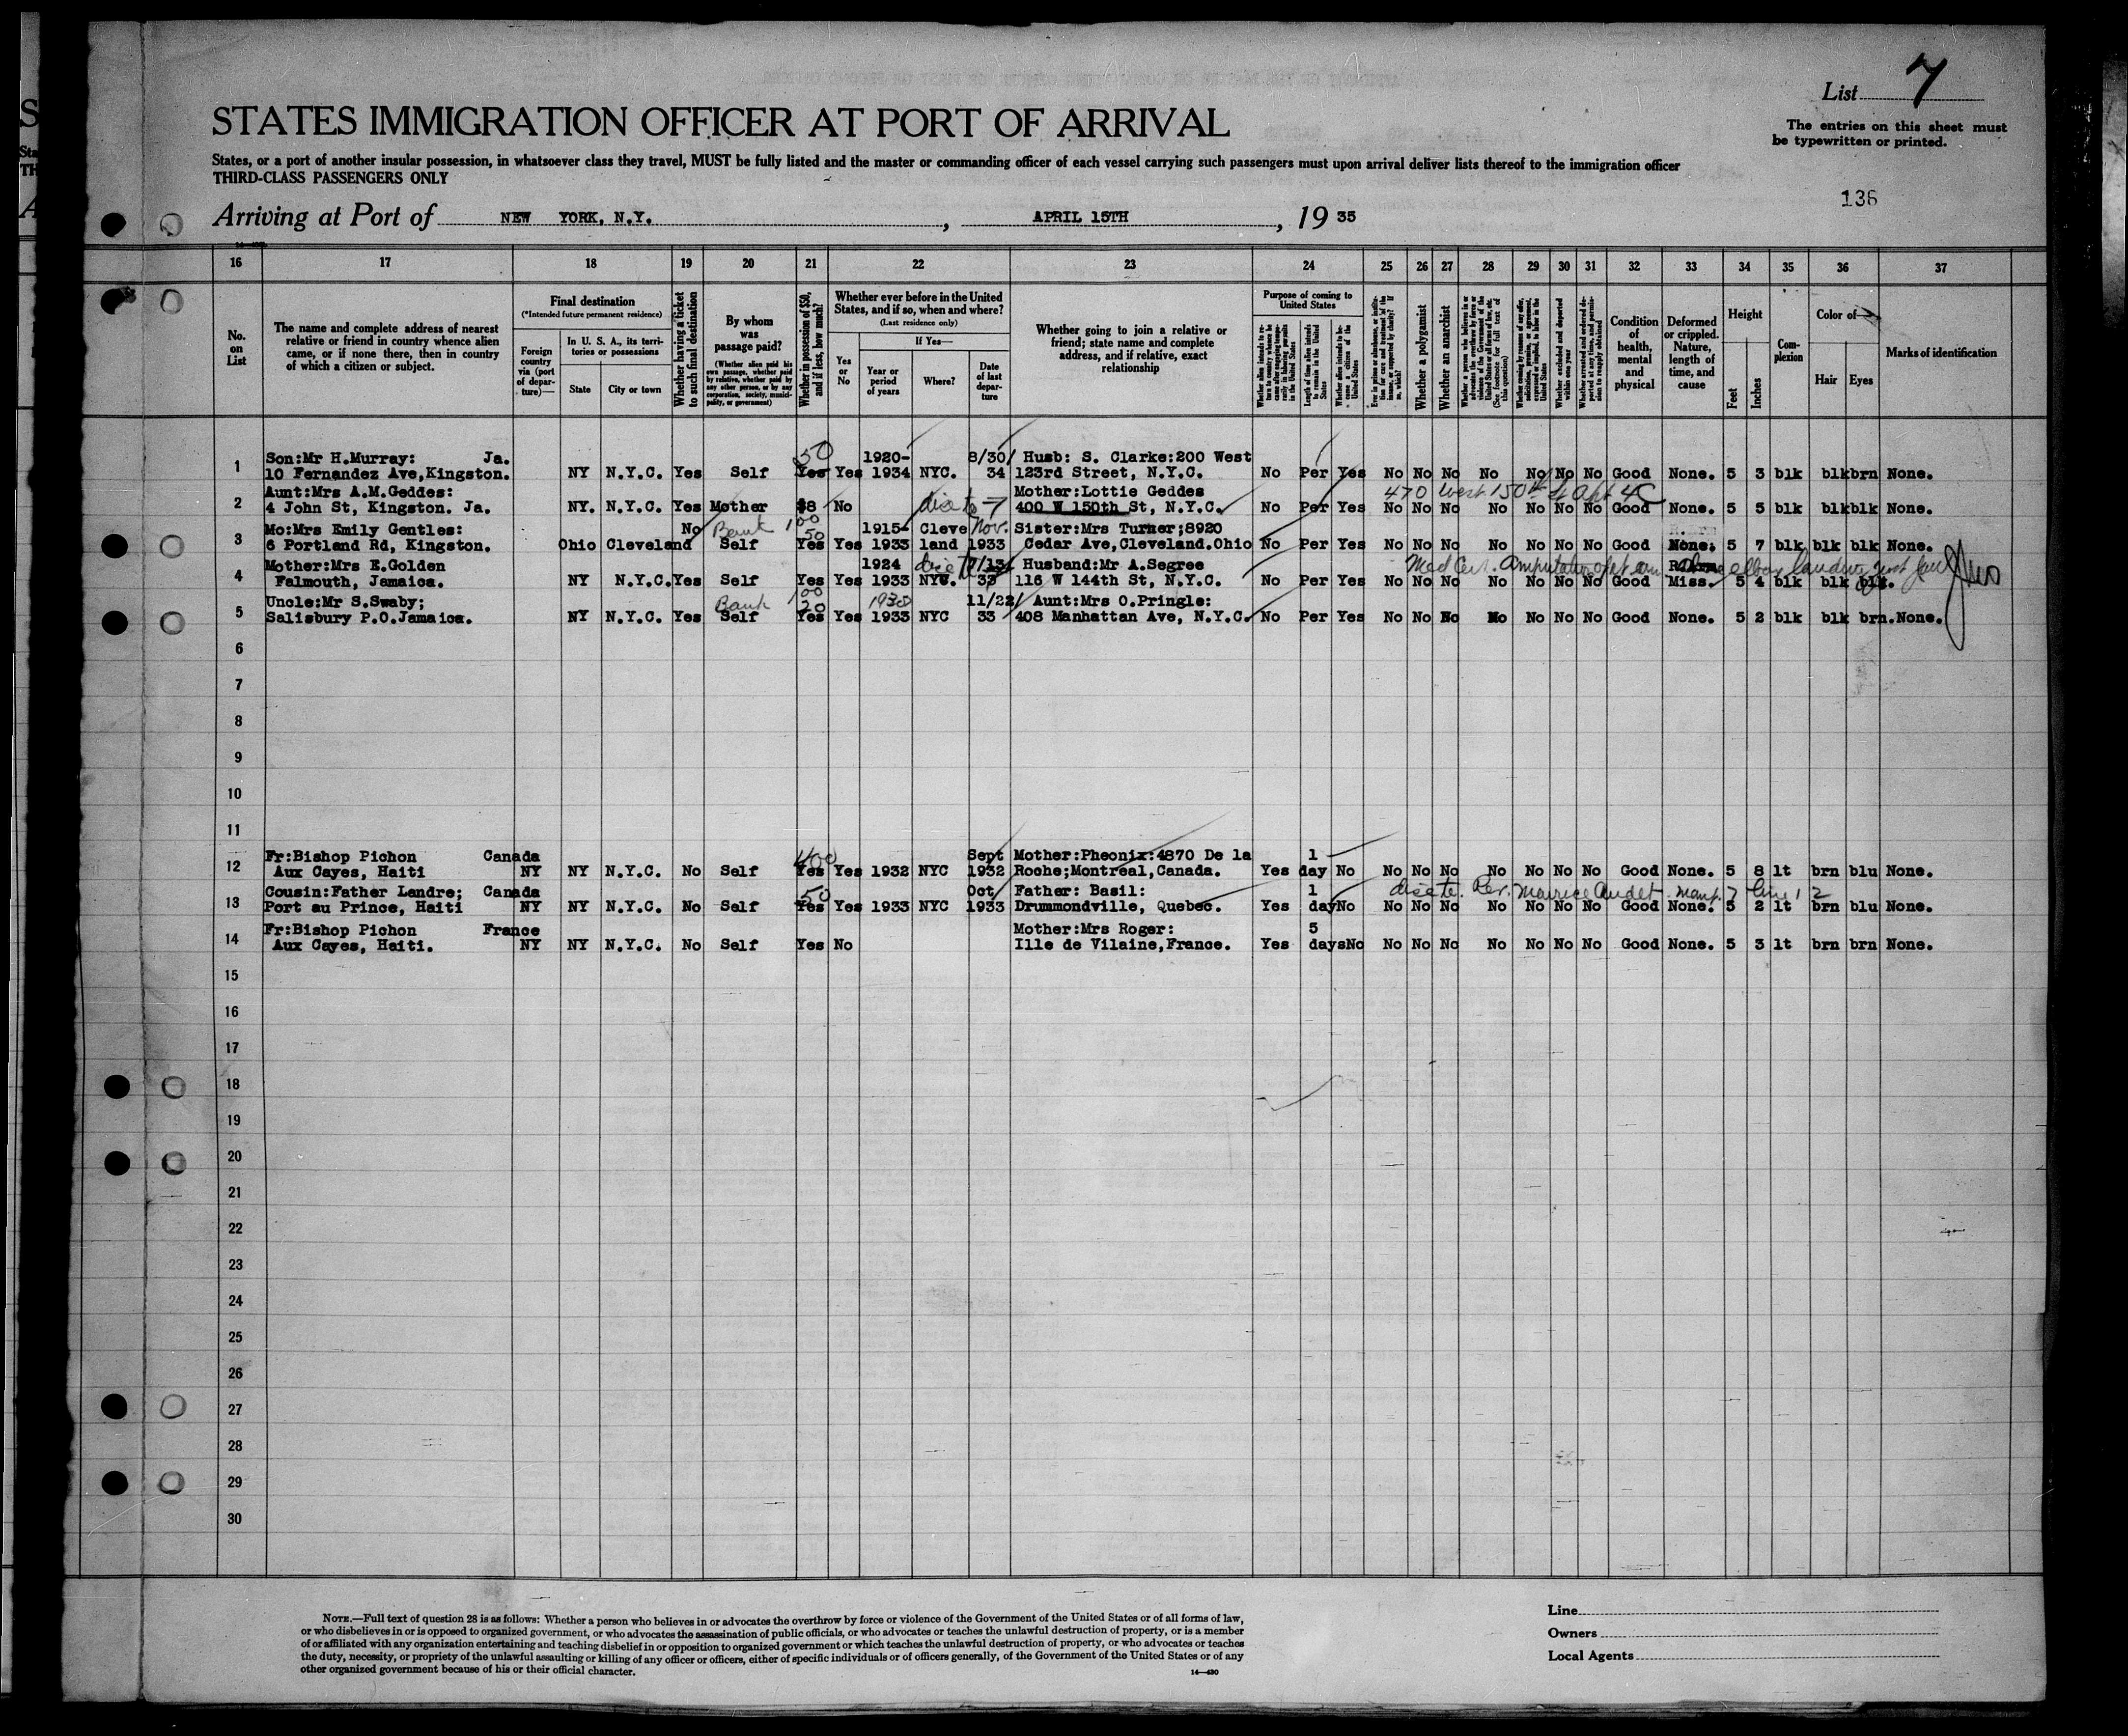 List 7
STATES IMMIGRATION OFFICER AT PORT OF ARRIVAL
The entries on this sheet must
be typewritten or printed.
States, or a port of another insular possession, in whatsoever class they travel, MUST be fully listed and the master or commanding officer of each vessel carrying such passengers must upon arrival deliver lists thereof to the immigration officer
THIRD-CLASS PASSENGERS ONLY
136
Arriving at Port of NEW YORK, N.Y. , APRIL 15TH , 19 35
16 17 18 19 20 21 22 23 24 25 26 27 28 29 30 31 32 33 34 35 36 37
No. on List
The name and complete address of nearest relative or friend in country whence alien came, or if none there, then in country of which a citizen or subject.
Final destination
(*Intended future permanent residence)
Foreign country via (port of departure)—
In U. S. A., its territories or possessions
State
City or town
Whether having a ticket to such final destination
By whom was passage paid?
(Whether alien paid his own passage, whether paid by relative, whether paid by any other person, or by any corporation, society, municipality, or government)
Whether in possession of $50, and if less, how much?
Whether ever before in the United States, and if so, when and where?
(Last residence only)
Yes or No
If Yes—
Year or period of years
Where?
Date of last departure
Whether going to join a relative or friend; state name and complete address, and if relative, exact relationship
Purpose of coming to United States
Length of time alien intends to remain in the United States
Whether alien intends to become a citizen of the United States
Whether a polygamist
Whether an anarchist
Condition of health, mental and physical
Deformed or crippled. Nature, length of time, and cause
Height
Feet
Inches
Complexion
Color of—
Hair
Eyes
Marks of identification
50
Son:Mr H.Murray: Ja. 1920- 8/30/ Husb: S. Clarke:200 West
1 10 Fernandez Ave,Kingston. NY N.Y.C. Yes Self Yes Yes 1934 NYC. 34 123rd Street, N.Y.C. No Per Yes No No No No No No No Good None. 5 3 blk blk brn None.
Aunt:Mrs A.M.Geddes: Mother:Lottie Geddes 470 West 150th St Apt 4C
2 4 John St, Kingston. Ja. NY. N.Y.C. Yes Mother $8 No 400 W 150th St, N.Y.C. No Per Yes No No No No No No No Good None. 5 5 blk blk blk None.
Mo:Mrs Emily Gentles: No Bank 100 50 1915- Cleve Nov. Sister:Mrs Turner;8920
3 6 Portland Rd, Kingston. Ohio Cleveland Self Yes Yes 1933 land 1933 Cedar Ave,Cleveland.Ohio No Per Yes No No No No No No No Good None. 5 7 blk blk blk None.
Mother:Mrs E.Golden 1924 7/13/ Husband:Mr A.Segree Med Cert. Amputation
4 Falmouth, Jamaica. NY N.Y.C. Yes Self Yes Yes 1933 NYC. 33 116 W 144th St, N.Y.C. No Per Yes No No No No No No No Good Miss. 5 4 blk blk blk.
Uncle:Mr S.Swaby; Bank 100 20 11/22/ Aunt:Mrs O.Pringle:
5 Salisbury P.O.Jamaica. NY N.Y.C. Yes Self Yes Yes 1933 NYC 33 408 Manhattan Ave, N.Y.C. No Per Yes No No No No No No No Good None. 5 2 blk blk brn. None.
6
7
8
9
10
11
Fr:Bishop Pichon Canada 400 Sept Mother:Pheonix:4870 De la 1
12 Aux Cayes, Haiti NY NY N.Y.C. No Self Yes Yes 1932 NYC 1932 Roche;Montreal,Canada. Yes day No No No No No No No No Good None. 5 8 lt brn blu None.
Cousin:Father Landre; Canada 50 Oct Father: Basil: 1 Rev. Maurice Audet 7 line 12
13 Port au Prince, Haiti NY NY N.Y.C. No Self Yes Yes 1933 NYC 1933 Drummondville, Quebec. Yes day No No No No No No No No Good None. 5 2 lt brn blu None.
Fr:Bishop Pichon France Mother:Mrs Roger: 5
14 Aux Cayes, Haiti. NY NY N.Y.C. No Self Yes No Ille de Vilaine,France. Yes days No No No No No No No No Good None. 5 3 lt brn brn None.
15
16
17
18
19
20
21
22
23
24
25
26
27
28
29
30
NOTE.—Full text of question 28 is as follows: Whether a person who believes in or advocates the overthrow by force or violence of the Government of the United States or of all forms of law,
or who disbelieves in or is opposed to organized government, or who advocates the assassination of public officials, or who advocates or teaches the unlawful destruction of property, or is a member
of or affiliated with any organization entertaining and teaching disbelief in or opposition to organized government or which teaches the unlawful destruction of property, or who advocates or teaches
the duty, necessity, or propriety of the unlawful assaulting or killing of any officer or officers, either of specific individuals or of officers generally, of the Government of the United States or of any
other organized government because of his or their official character.
14—430
Line
Owners
Local Agents